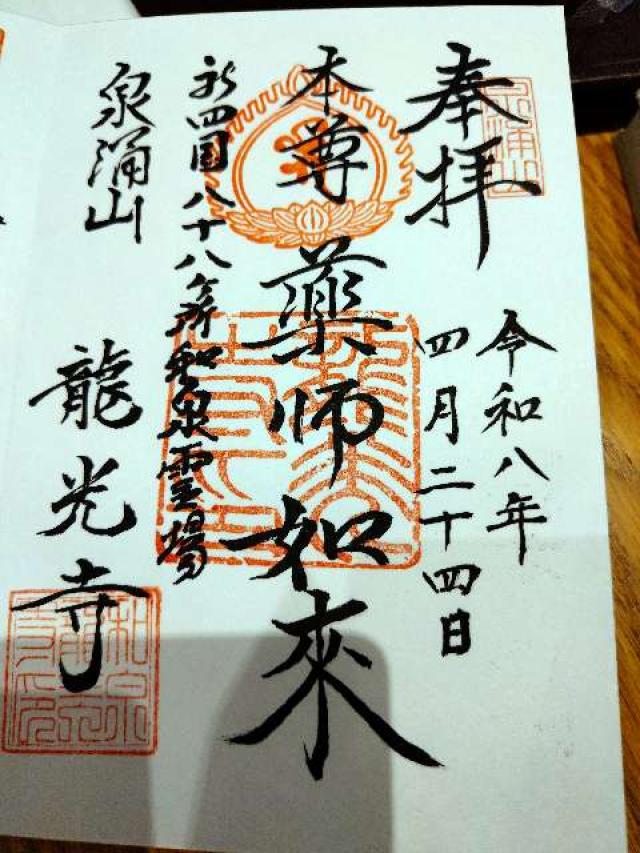 奉拝
令和八年
四月二十四日
本尊 藥師如來
新四国八十八ヶ所和泉霊場
泉涌山
龍光寺
泉涌山